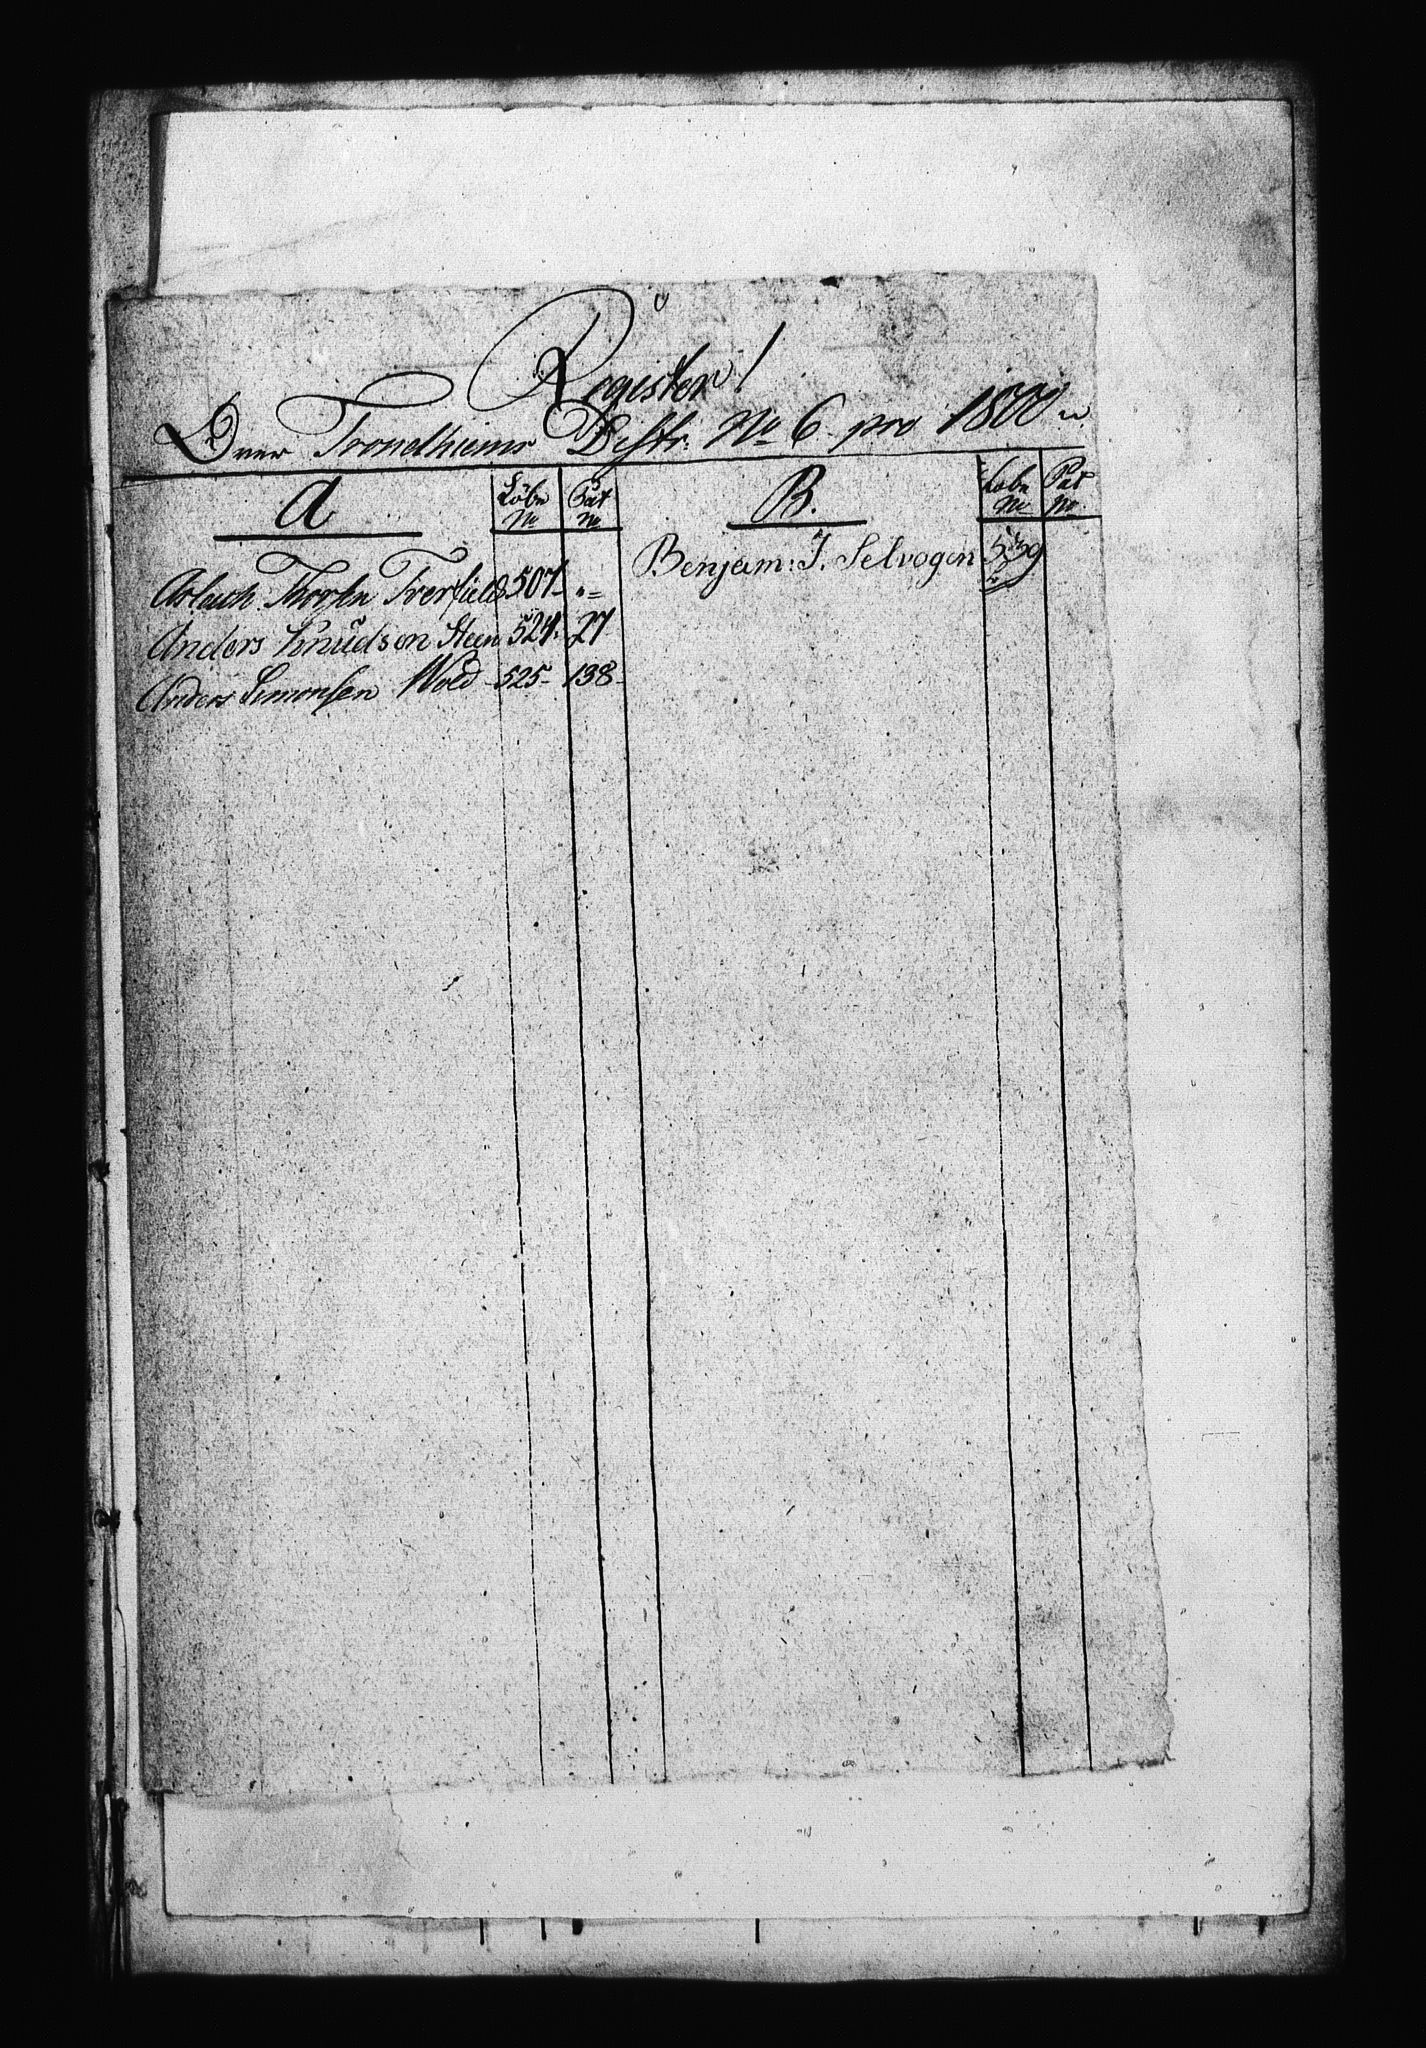 Register!
Over Trondhiems Distr: No 6 pro 1800
A Löbe No Pat No B. Löbe No Pat No
Aslach Thorsen Tverfield 507 " Benjam: J. Selvogen 539
Anders Knudsen Steen 524 27
Anders Simonsen Wold 525 138